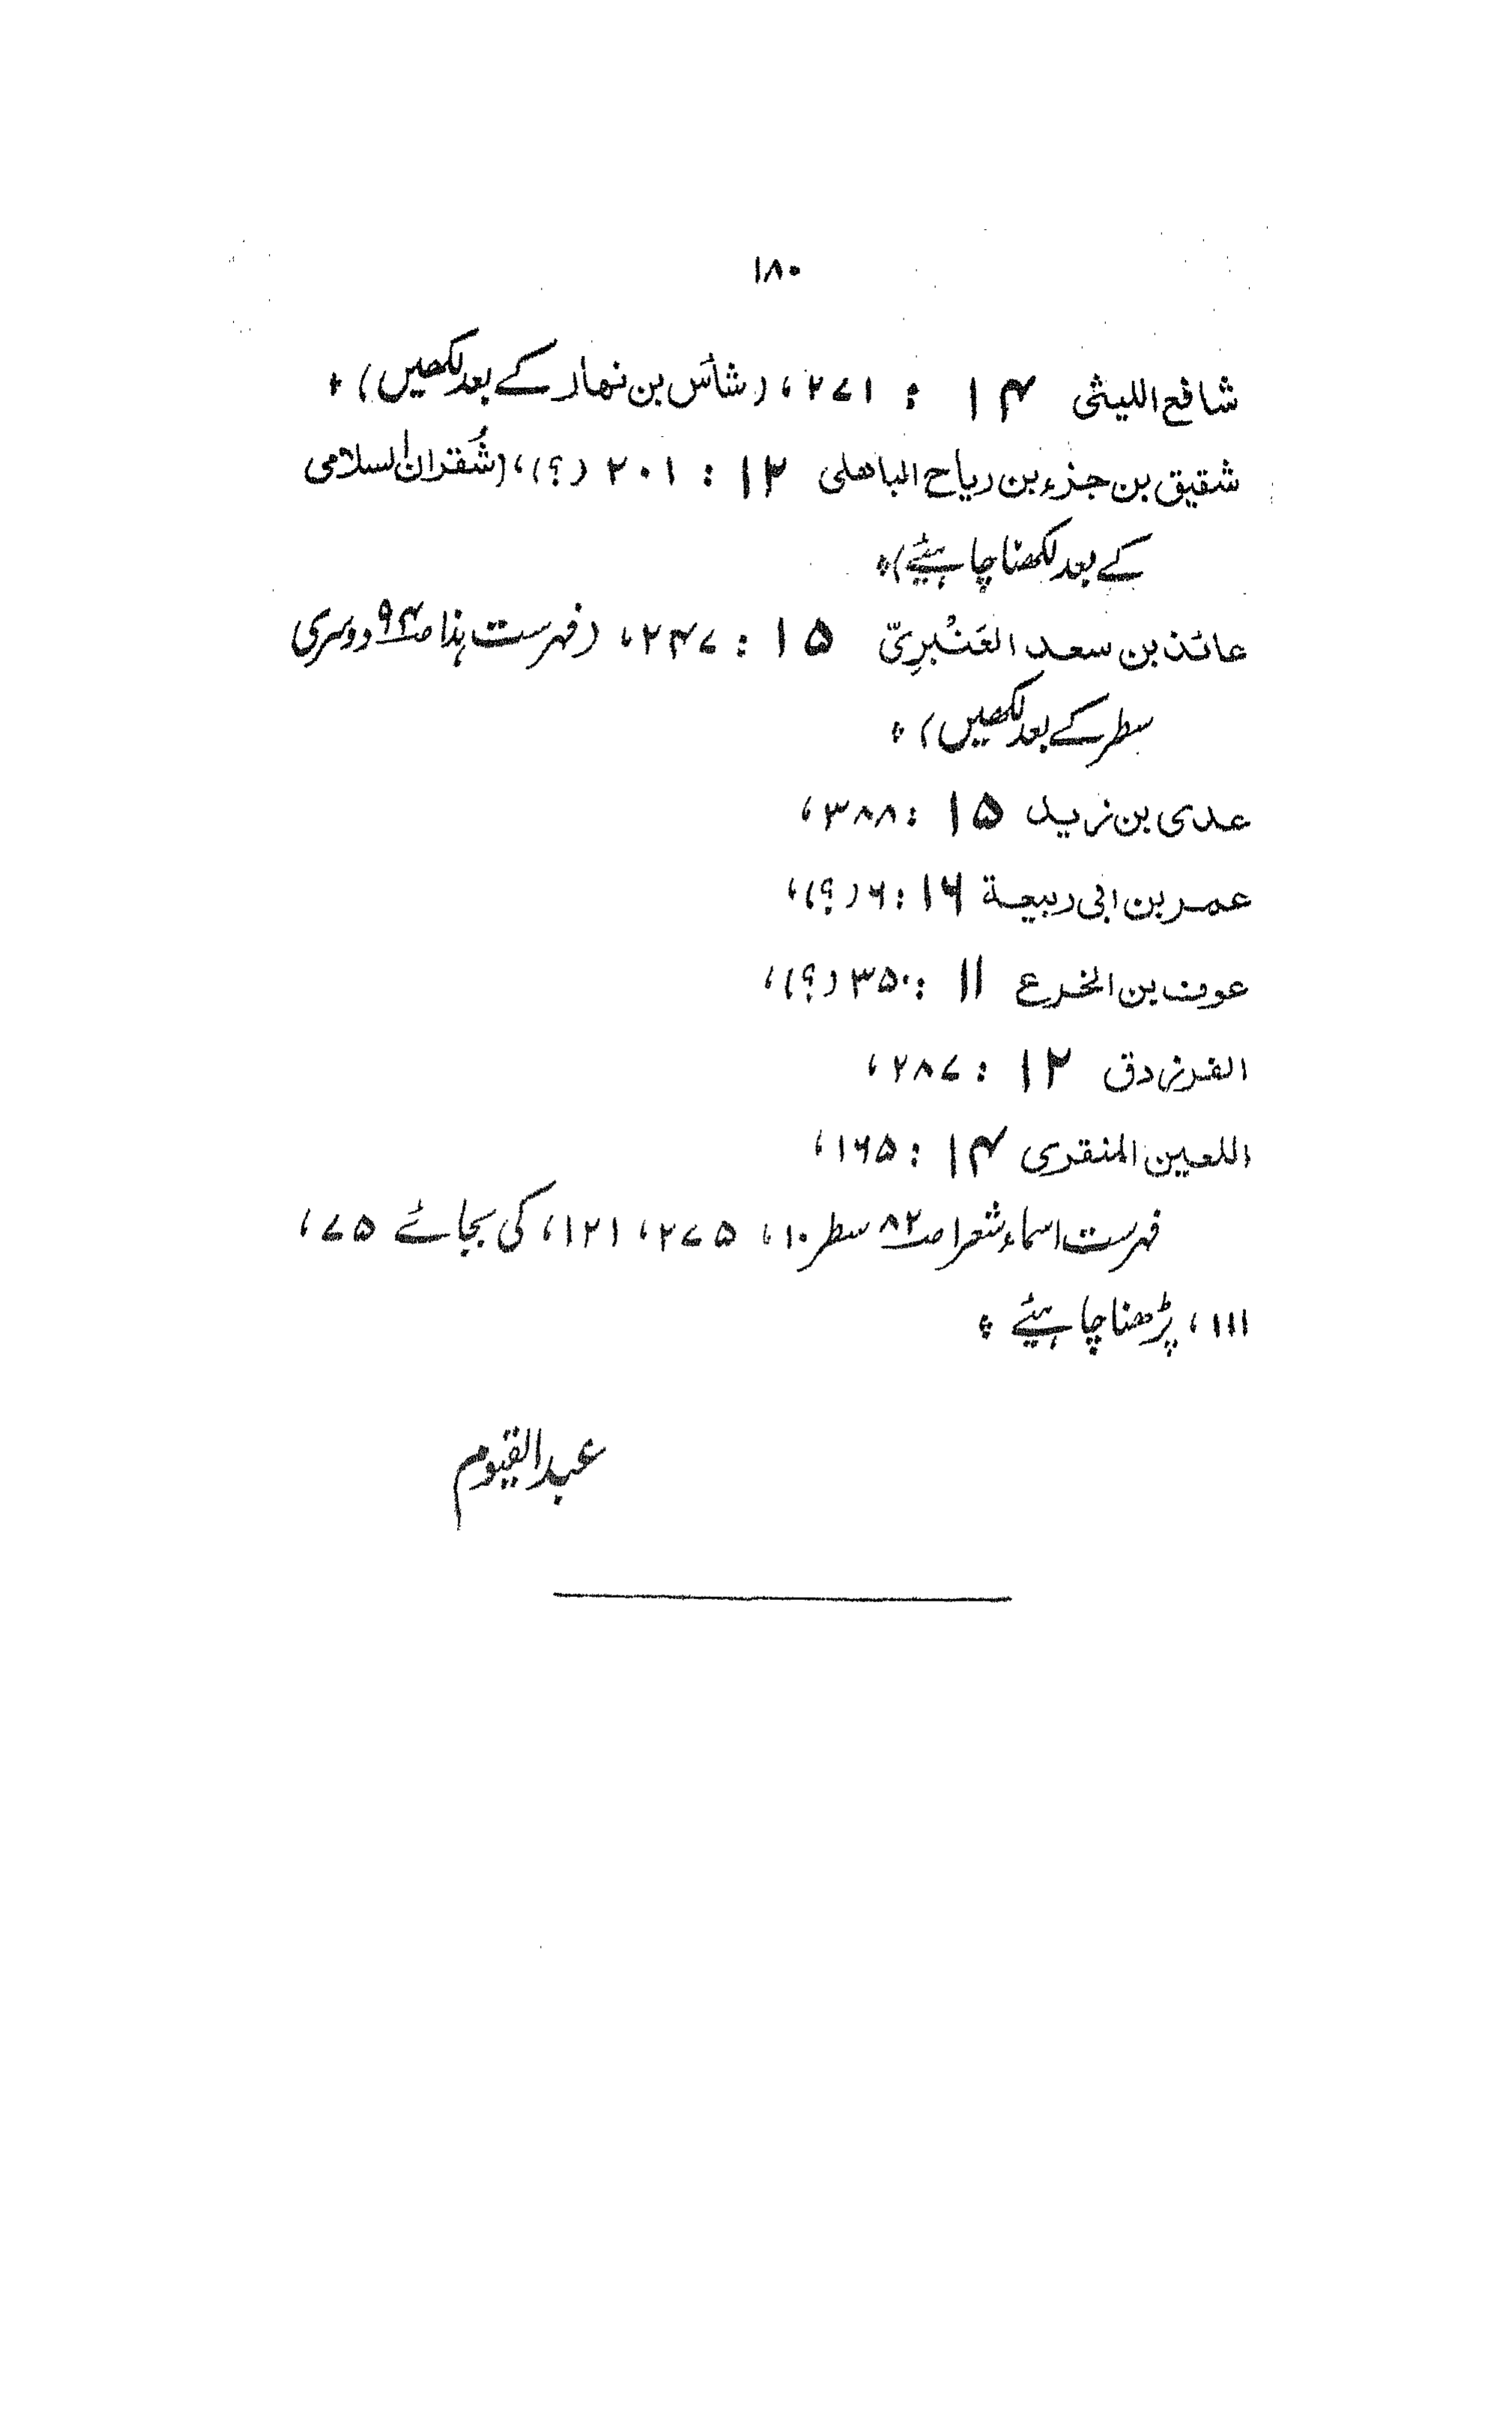 ۱۸۰
شافع اللیثی ۱۴ : ۲۷۱، (شأس بن نهار کے بعد لکھیں) *
شقیق بن جزء بن ریاح الباهلی ۱۲ : ۲۰۱ (؟)، (شُقران السلامی
کے بعد لکھنا چاہئیے) *
عائذ بن سعد العَنْبرِیّ ۱۵ : ۲۴۷، (فہرست ہذا صـ۹۴ دوسری
سطر کے بعد لکھیں) *
عدی بن زید ۱۵ : ۳۸۸،
عمر بن ابی ربیعة ۱۶ : ۶ (؟)،
عوف بن الخرع ۱۱ : ۳۵۰ (؟)،
الفرزدق ۱۲ : ۲۸۷،
اللعین المنقری ۱۴ : ۱۶۵،
فہرست اسماء شعرا صـ۸۲ سطر ۱۰، ۲۷۵، ۱۲۱، کی بجائے ۷۵،
۱۱۱، پڑھنا چاہئیے *
عبدالقیوم